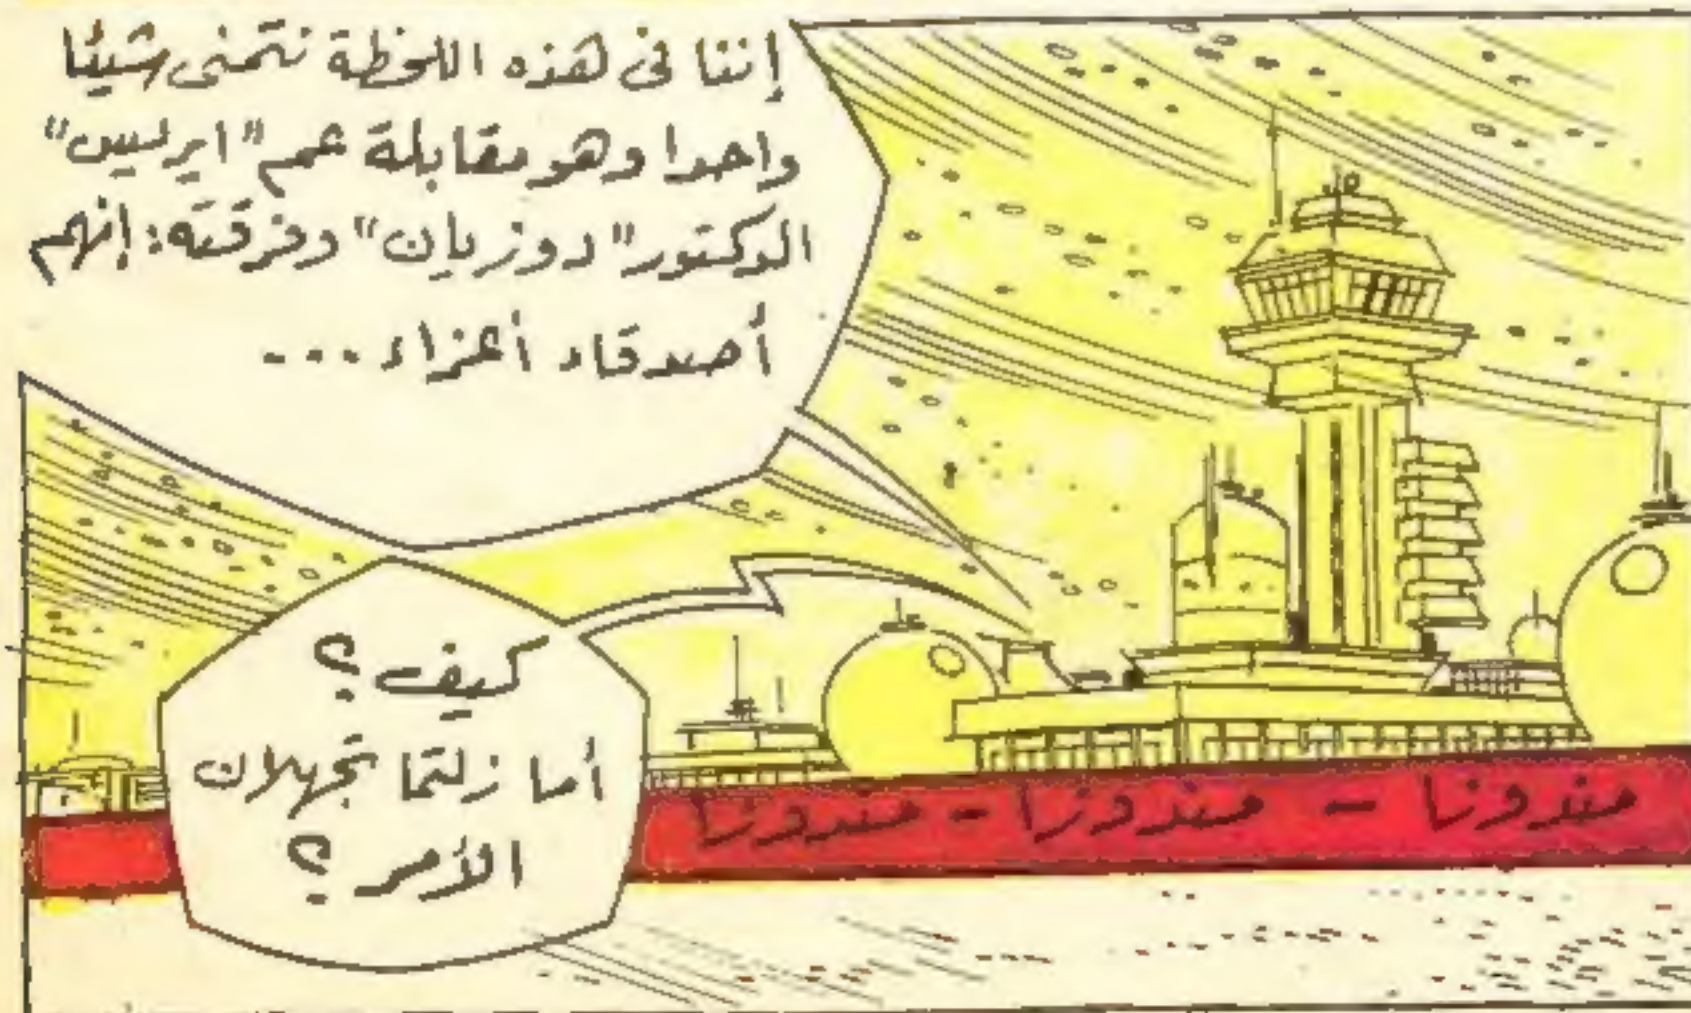 إننا في هذه اللحظة نتمنى شيئا
واحدا وهو مقابلة عم "ايرليس"
الدكتور "دوزيان" وفرقته: إنهم
أصدقاء أعزاء ...
كيف؟
أما زلتما تجهلان
الأمر؟
مندونا - مندونا - مندونا